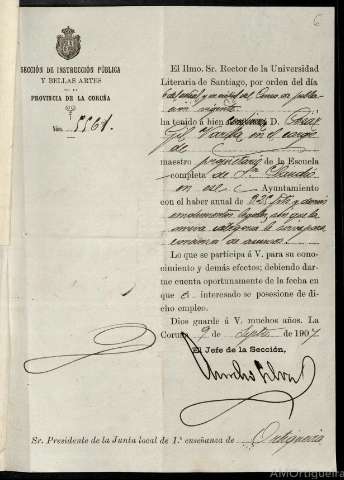 6
SECCIÓN DE INSTRUCCIÓN PÚBLICA
Y BELLAS ARTES
DE LA
PROVINCIA DE LA CORUÑA
Núm. 5561.
El Ilmo. Sr. Rector de la Universidad
Literaria de Santiago, por orden del día
6 del actual y en virtud del Censo de pobla-
ción vigente
ha tenido á bien D. César
Gil Varela en el cargo
de
maestro propietario de la Escuela
completa de Sn. Claudio
en ese Ayuntamiento
con el haber anual de 825 pts y demás
emolumentos legales, sin que la
nueva categoría le sirva para
concursos de ascenso.
Lo que se participa á V. para su cono-
cimiento y demás efectos; debiendo dar-
me cuenta oportunamente de la fecha en
que el interesado se posesione de di-
cho empleo.
Dios guarde á V. muchos años. La
Coruña 9 de Septe. de 1907.
El Jefe de la Sección,
Sr. Presidente de la Junta local de 1.ª enseñanza de Ortigueira
AMOrtigueira